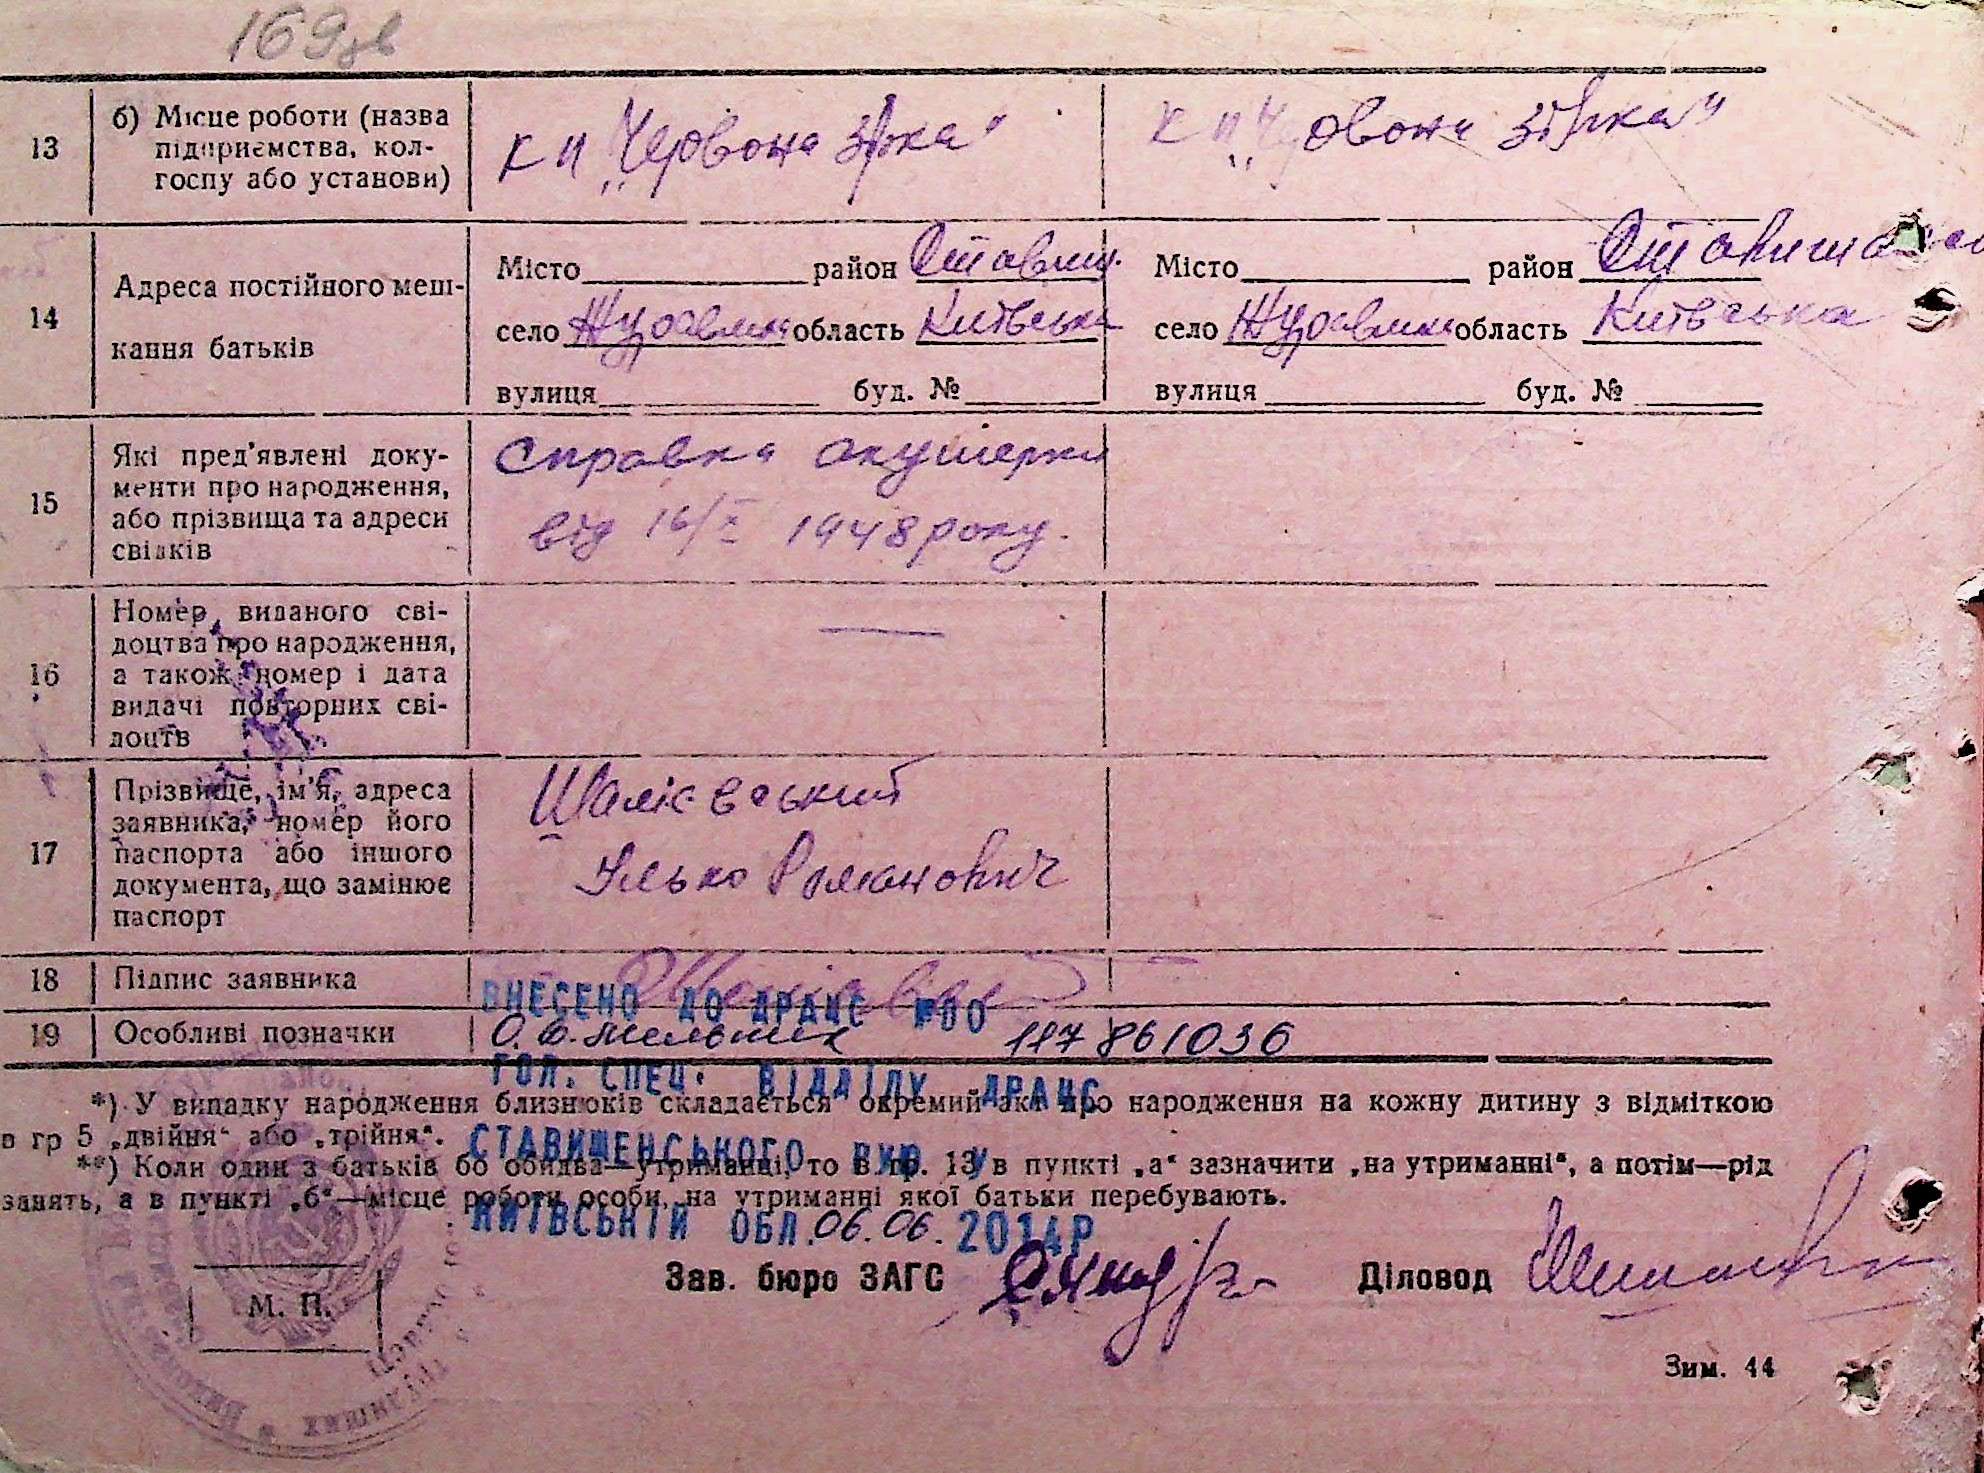 169зв
13
б) Місце роботи (назва
підприємства, кол-
госпу або установи)
к п „Червона зірка"
к п „Червона зірка"
14
Адреса постійного меш-
кання батьків
Місто район Ставищ.
село Журавлиха область Київська
вулиця буд. №
Місто район
село Журавлиха область Київська
вулиця буд. №
15
Які пред'явлені доку-
менти про народження,
або прізвища та адреси
свідків
Справка акушерки
від 16/X 1948 року.
16
Номер виданого сві-
доцтва про народження,
а також номер і дата
видачі повторних сві-
доцтв
—
17
Прізвище, ім'я, адреса
заявника, номер його
паспорта або іншого
документа, що замінює
паспорт
Шалієвський
Улько Романович
18
Підпис заявника
ВНЕСЕНО ДО ДРАЦС №00
19
Особливі позначки
117 861036
ГОЛ. СПЕЦ. ВІДДІЛУ ДРАЦС
*) У випадку народження близнюків складається окремий акт про народження на кожну дитину з відміткою
в гр 5 „двійня“ або „трійня“.
СТАВИЩЕНСЬКОГО РУЮ У
**) Коли один з батьків бо обидва—утриманці, то в гр. 13 в пункті „а“ зазначити „на утриманні“, а потім—рід
занять, а в пункті „б“—місце роботи особи, на утриманні якої батьки перебувають.
КИЇВСЬКІЙ ОБЛ. 06.06. 2014Р
Зав. бюро ЗАГС
Діловод
М. П.
Зим. 44